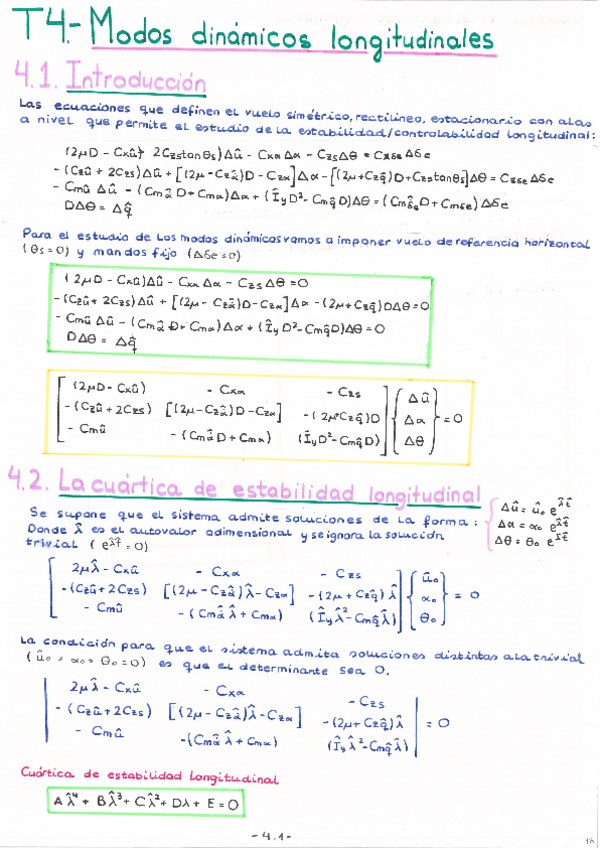 T4.- Modos dinámicos longitudinales
4.1. Introducción
Las ecuaciones que definen el vuelo simétrico, rectilíneo, estacionario con alas
a nivel que permite el estudio de la estabilidad/controlabilidad longitudinal:
(2μD - Cxû + 2Czs tanθs)Δû - Cxα Δα - CzsΔθ = Cxδe Δδe
- (Czû + 2Czs)Δû + [(2μ - Czα̂̇)D - Czα]Δα - [(2μ + Czq̂)D + Czs tanθs]Δθ = Czδe Δδe
- Cmû Δû - (Cmα̂̇ D + Cmα)Δα + (ÎyD² - Cmq̂ D)Δθ = (Cmδ̇e D + Cmδe)Δδe
DΔθ = Δq̂
Para el estudio de los modos dinámicos vamos a imponer vuelo de referencia horizontal
(θs = 0) y mandos fijo (Δδe = 0)
(2μD - Cxû)Δû - Cxα Δα - Czs Δθ = 0
-(Czû + 2Czs)Δû + [(2μ - Czα̂̇)D - Czα]Δα - (2μ + Czq̂)DΔθ = 0
- Cmû Δû - (Cmα̂̇ D + Cmα)Δα + (ÎyD² - Cmq̂D)Δθ = 0
DΔθ = Δq̂
(2μD - Cxû) - Cxα - Czs Δû
-(Czû + 2Czs) [(2μ - Czα̂̇)D - Czα] - (2μ+Czq̂)D Δα = 0
- Cmû - (Cmα̂̇ D + Cmα) (ÎyD² - Cmq̂D) Δθ
4.2. La cuártica de estabilidad longitudinal
Se supone que el sistema admite soluciones de la forma: Δû = û₀ e^λ̂t̂
Donde λ̂ es el autovalor adimensional y se ignora la solución Δα = α₀ e^λ̂t̂
trivial (e^λ̂t̂ = 0) Δθ = θ₀ e^λ̂t̂
2μλ̂ - Cxû - Cxα - Czs û₀
-(Czû + 2Czs) [(2μ - Czα̂̇)λ̂ - Czα] - (2μ + Czq̂)λ̂ α₀ = 0
- Cmû - (Cmα̂̇ λ̂ + Cmα) (Îyλ̂² - Cmq̂λ̂) θ₀
La condición para que el sistema admita soluciones distintas a la trivial
(û₀ = α₀ = θ₀ = 0) es que el determinante sea 0.
2μλ̂ - Cxû - Cxα - Czs
- (Czû + 2Czs) [(2μ - Czα̂̇)λ̂ - Czα] -(2μ + Czq̂)λ̂ = 0
- Cmû -(Cmα̂̇ λ̂ + Cmα) (Îyλ̂² - Cmq̂λ̂)
Cuártica de estabilidad longitudinal
Aλ̂⁴ + Bλ̂³ + Cλ̂² + Dλ + E = 0
- 4.1 -